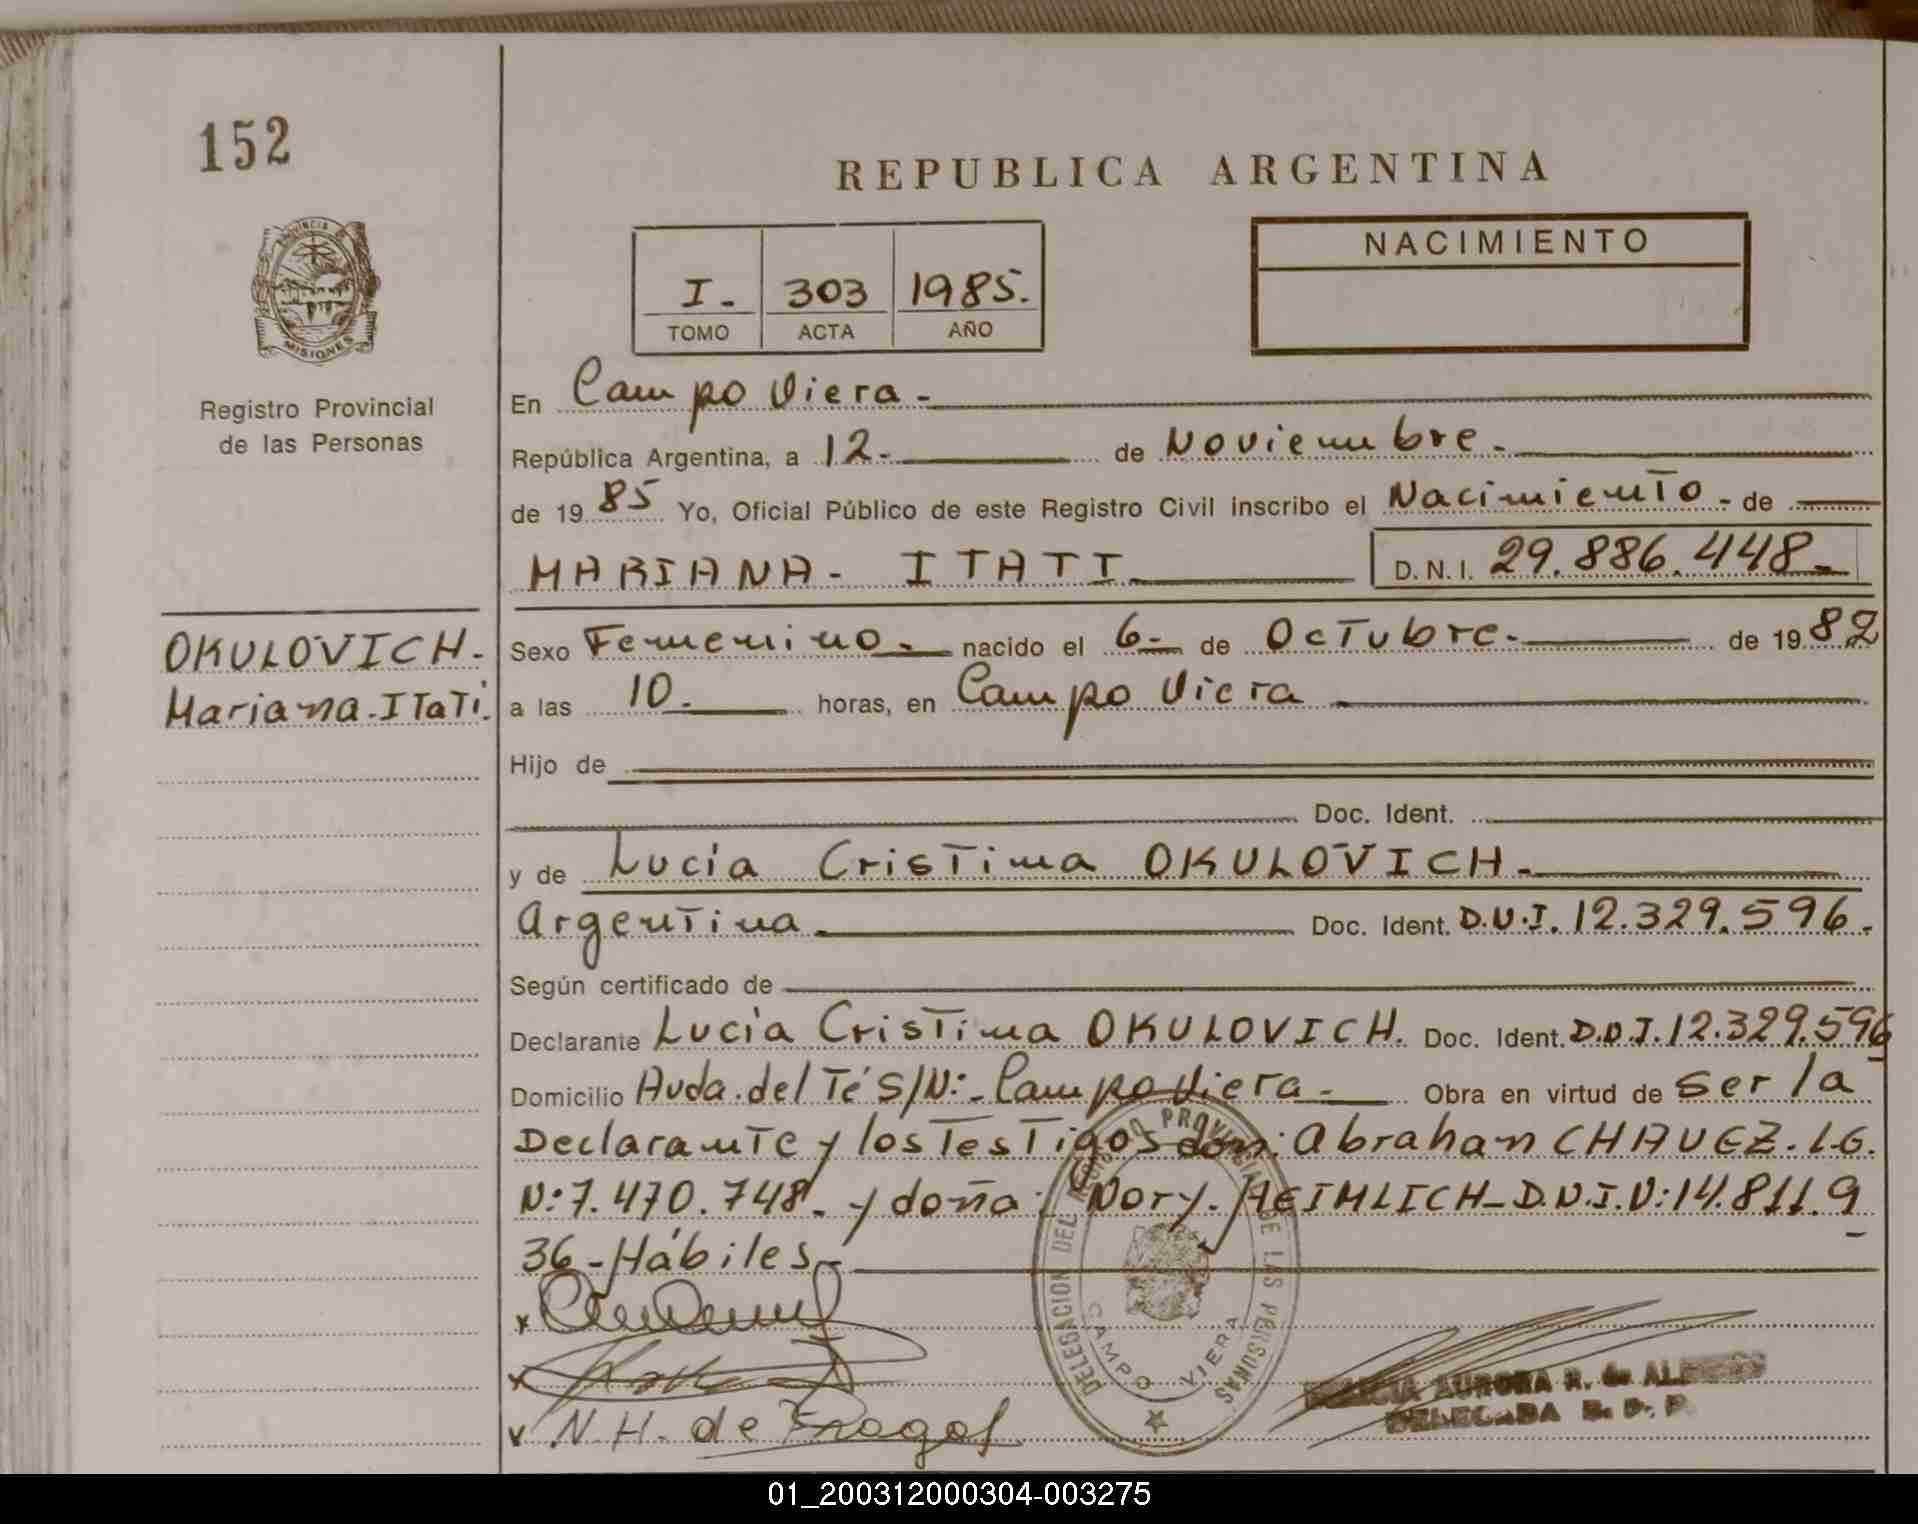 152
REPUBLICA ARGENTINA
PROVINCIA DE
MISIONES
Registro Provincial
de las Personas
NACIMIENTO
I.- 303 1985.
TOMO ACTA AÑO
En Campo Viera.-
República Argentina, a 12.- de Noviembre.-
de 1985 Yo, Oficial Público de este Registro Civil inscribo el Nacimiento.- de
MARIANA- ITATI D.N.I. 29.886.448.-
OKULOVICH.-
Mariana.ITaTi.
Sexo Femenino.- nacido el 6.- de Octubre.- de 1982
a las 10.- horas, en Campo Viera
Hijo de
Doc. Ident.
y de Lucía Cristina OKULOVICH.-
Argentina.- Doc. Ident. D.N.I. 12.329.596.-
Según certificado de
Declarante Lucía Cristina OKULOVICH. Doc. Ident. D.N.I. 12.329.596
Domicilio Avda. del Té S/N:- Campo Viera.- Obra en virtud de ser la
Declarante y los Testigos don: Abrahan CHAVEZ. L.G.
N:7.470.748.- y doña: Nory. HEIMLICH-D.N.I.N:14.811.9
36-Hábiles.-
DELEGACION DEL REGISTRO PROVINCIAL DE LAS PERSONAS
CAMPO VIERA
AURORA R. de
DELEGADA R. P. P.
N.H. de Fragos
01_200312000304-003275